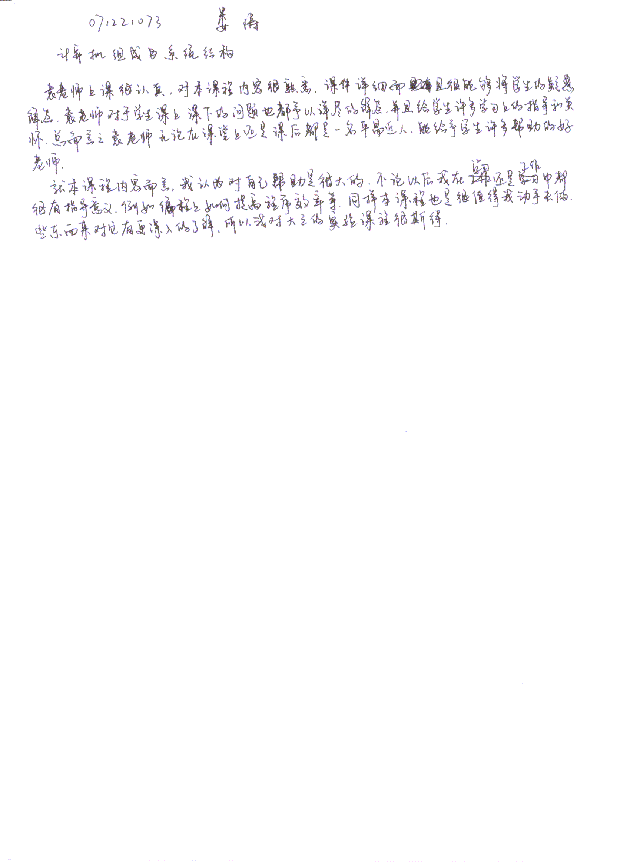 071221073 姜涛
计算机组成与系统结构
袁老师上课很认真，对本课程内容很熟悉，课件详细而且很能够将学生的疑惑
解答。袁老师对于学生课上课下的问题也都予以详尽的解答，并且给学生许多学习上的指导和关
怀。总而言之袁老师无论在课堂上还是课后都是一名平易近人，能给予学生许多帮助的好
老师。
就本课程内容而言，我认为对自己帮助是很大的，不论以后我在还是工作中都
很有指导意义，例如编程上如何提高程序效率等。同样本课程也是很值得我动手去做
些东西来对它有更深入的了解，所以我对大三的实验课程很期待。